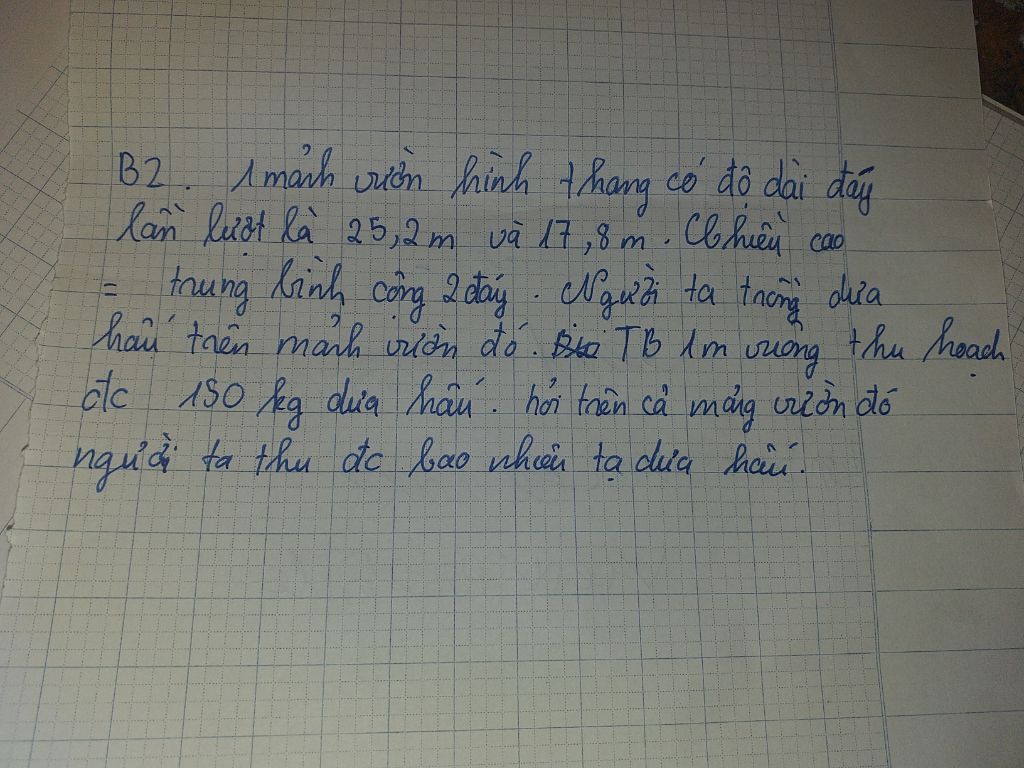 B2. 1 mảnh vườn hình thang có độ dài đáy
lần lượt là 25,2 m và 17,8 m. Chiều cao
= trung bình cộng 2 đáy. Người ta trồng dưa
hấu trên mảnh vườn đó. TB 1m vuông thu hoạch
đc 150 kg dưa hấu. hỏi trên cả mảng vườn đó
người ta thu đc bao nhiêu tạ dưa hấu.